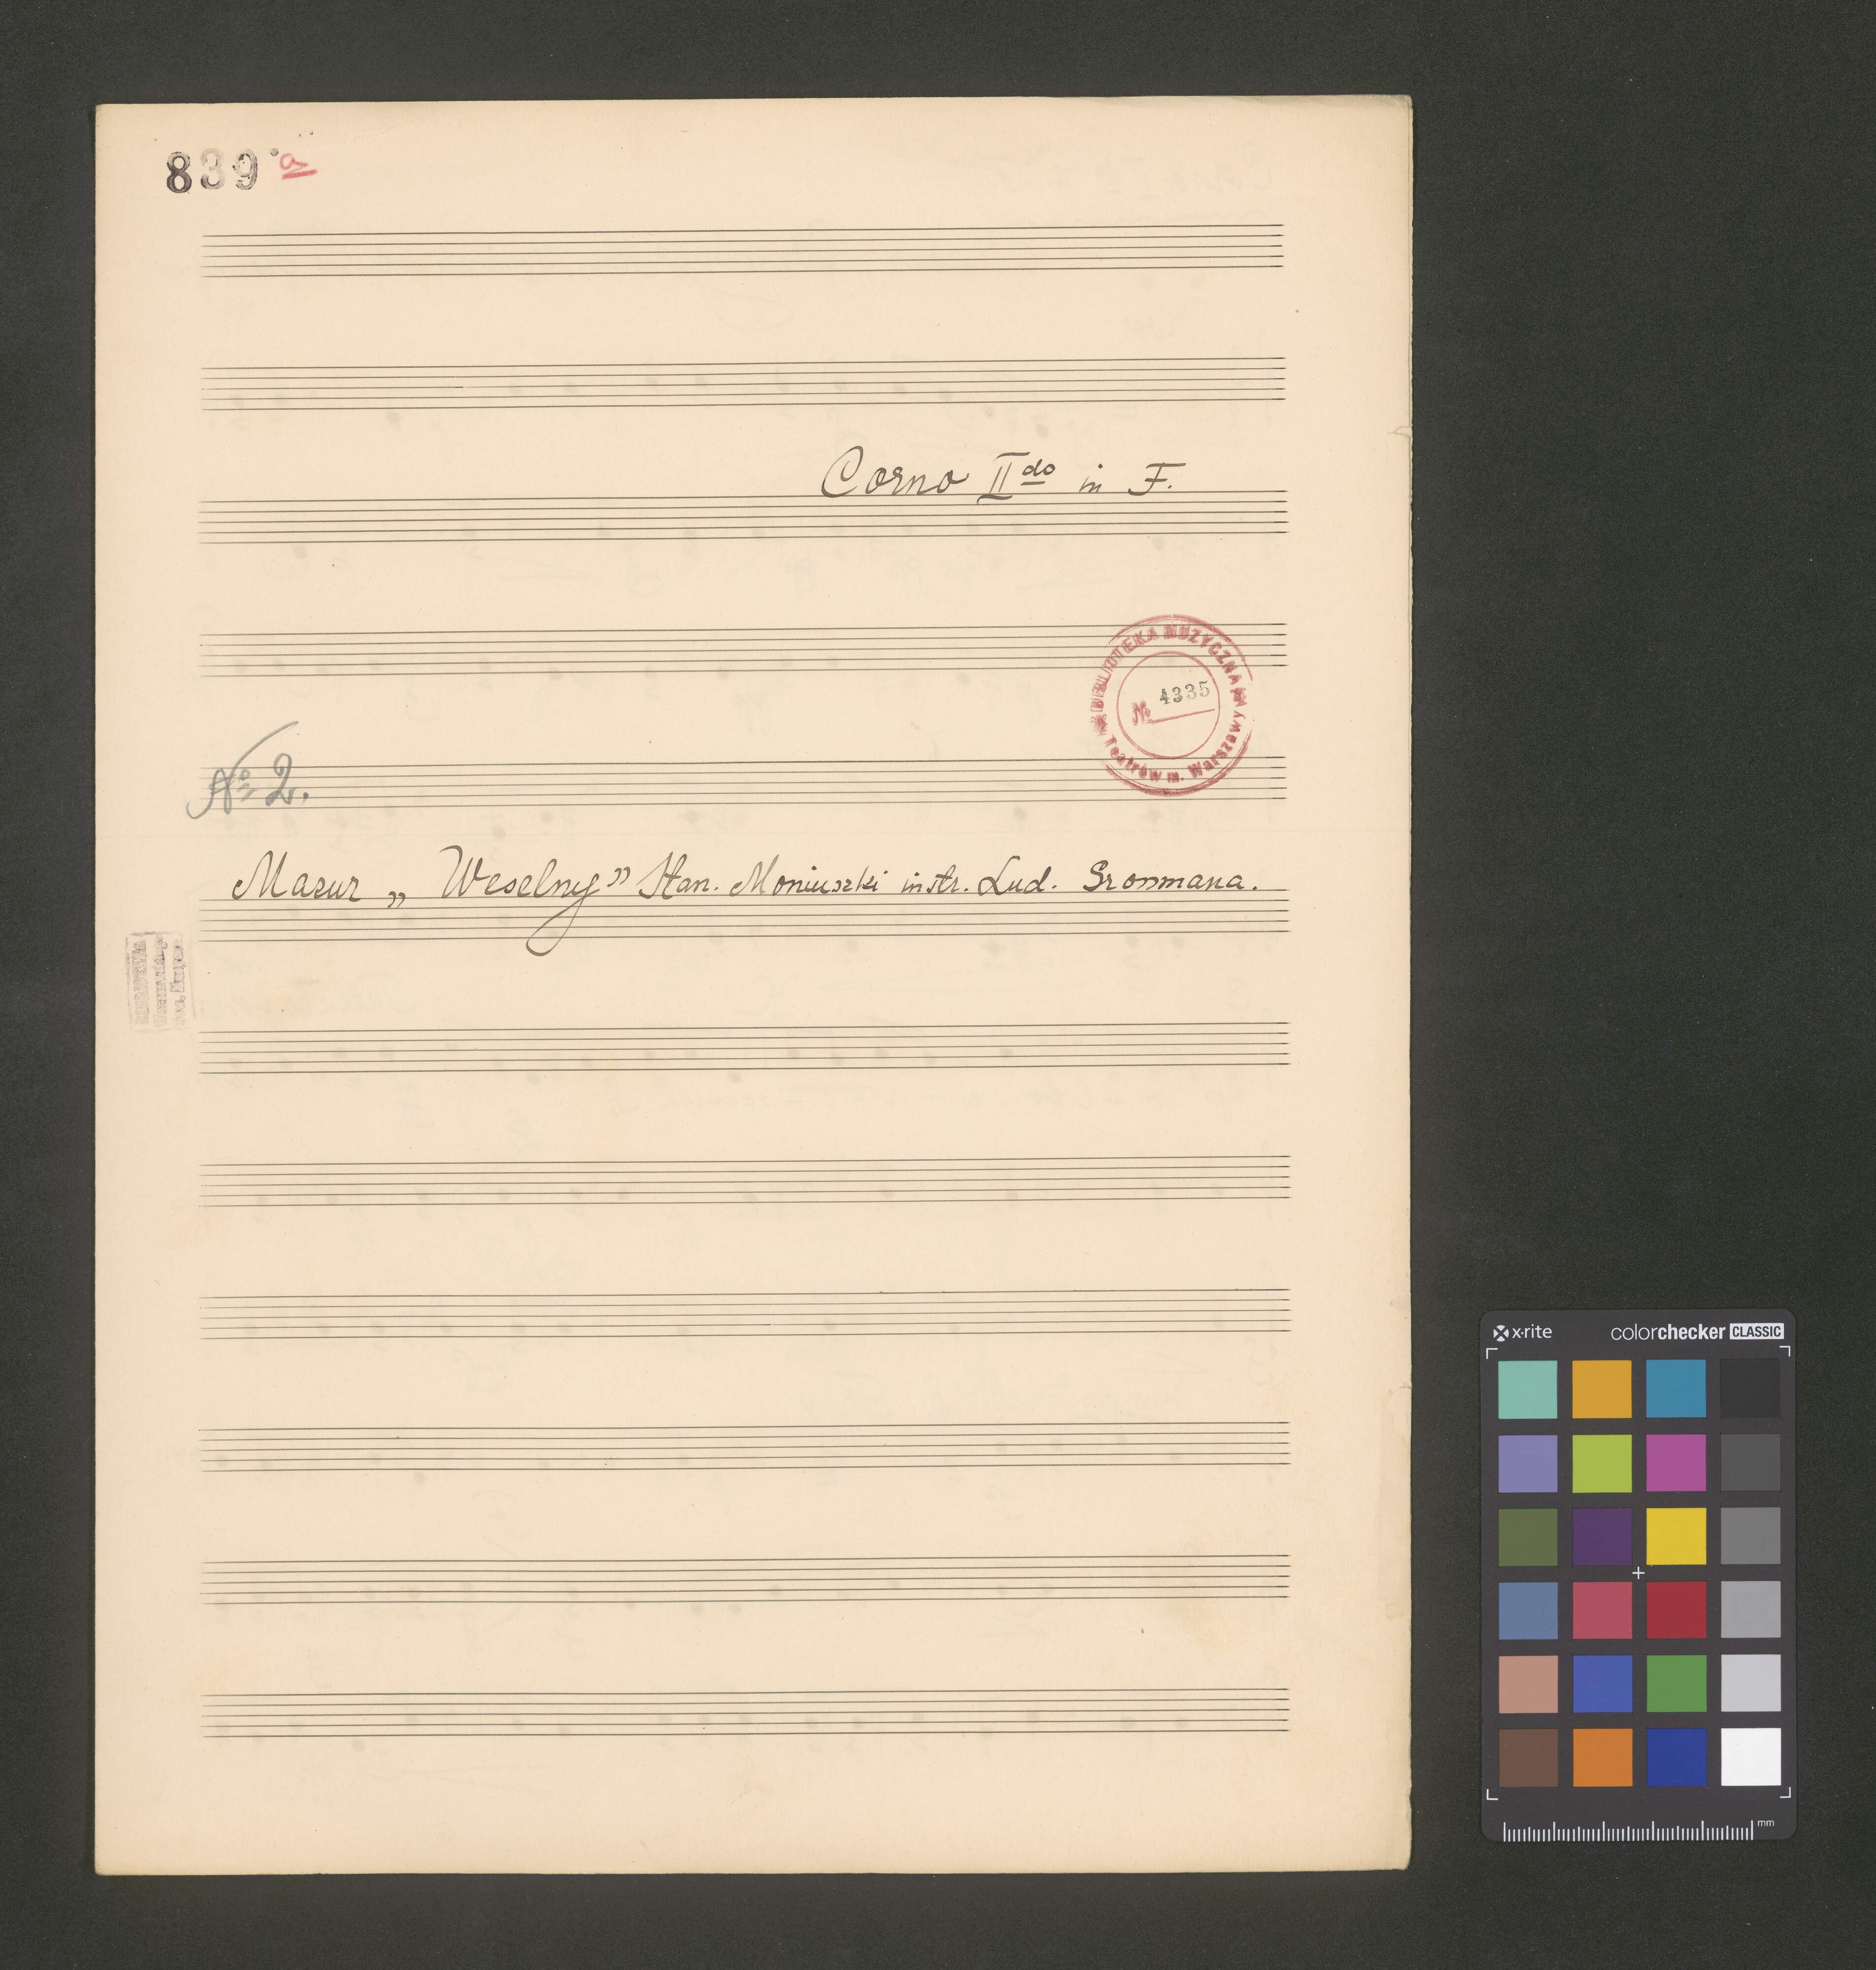 839 a
Corno IIdo in F.
BIBLIOTEKA MUZYCZNA
№ 4335
Teatrów m. Warszawy
№ 2.
Mazur „Weselny" Stan. Moniuszki instr. Lud. Sronmana.
x·rite colorchecker CLASSIC
mm